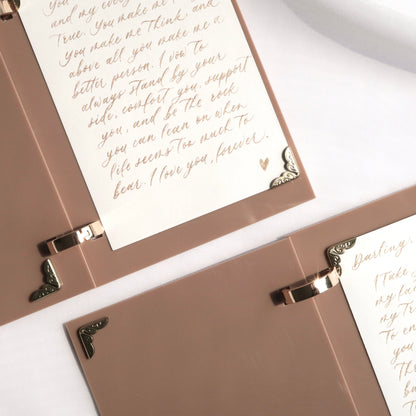 You
and my every
True. You make me
you make me think, and
above all you make me a
better person. I vow to
always stand by your
side, comfort you, support
you, and be the rock
you can lean on when
life seems too much to
bear. I love you, forever.
Darling,
I take
my
my
To en
you
Thr